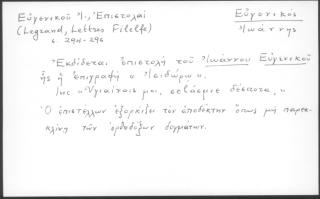 Εὐγενικοῦ Ἰ., Ἐπιστολαί
(Legrand, Lettres Filelfe)
σ. 294-296
Εὐγενικός
Ἰωάννης
Ἐκδίδεται ἐπιστολὴ τοῦ Ἰωάννου Εὐγενικοῦ
ἧς ἡ ἐπιγραφή « Ἰσιδώρῳ ».
Ἱης « Ὑγιαίνοις μοι, σεβάσμιε δέσποτα, »
Ὁ ἐπιστέλλων ἐξορκίζει τὸν ἀποδέκτην ὅπως μὴ παρεκ-
κλίνῃ τῶν ὀρθοδόξων δογμάτων.